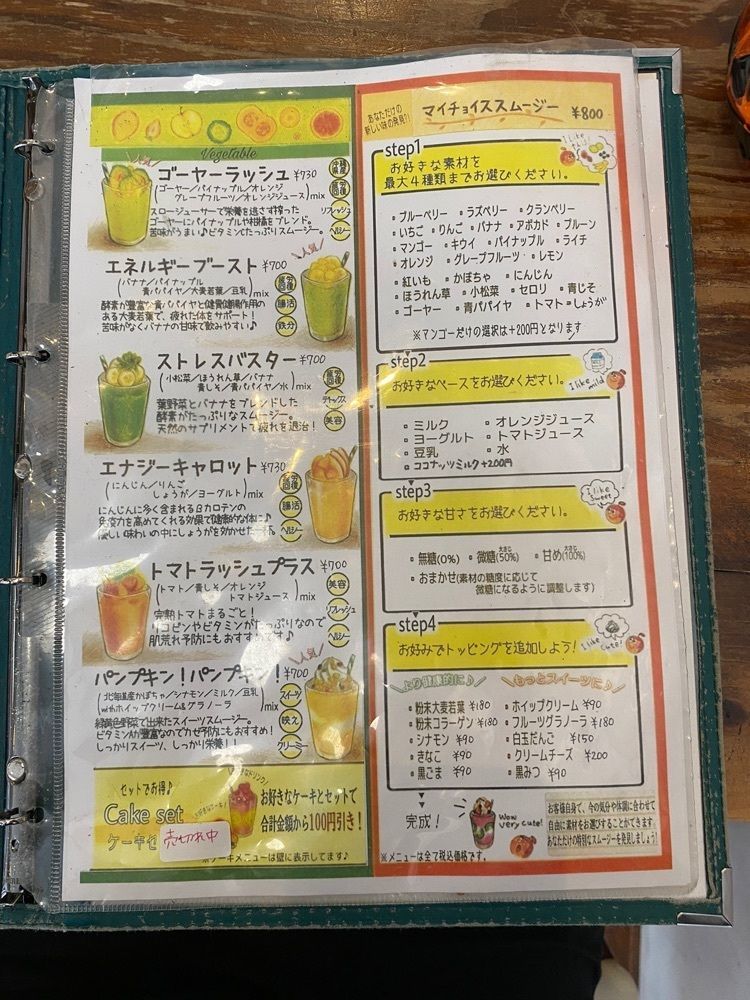 Vegetable
ゴーヤーラッシュ ¥730
(ゴーヤー/パイナップル/オレンジ
グレープフルーツ/オレンジジュース)mix
スロージューサーで栄養を逃さず搾った
ゴーヤーにパイナップルや柑橘をブレンド。
苦味がうまい♪ビタミンたっぷりスムージー。
沖縄県産
疲労回復
リフレッシュ
ヘルシー
人気!
エネルギーブースト ¥700
(バナナ/パイナップル
青パパイヤ/大麦若葉/豆乳)mix
酵素が豊富な青パパイヤと健胃健腸作用の
ある大麦若葉で、疲れた体をサポート!
苦味がなくバナナの甘味で飲みやすい♪
疲労回復
腸活
鉄分
ストレスバスター ¥700
(小松菜/ほうれん草/バナナ
青しそ/青パパイヤ/水)mix
葉野菜とバナナをブレンドした
酵素がたっぷりなスムージー。
天然のサプリメントで疲れを退治!
疲労回復
デトックス
美容
エナジーキャロット ¥730
(にんじん/りんご
しょうが/ヨーグルト)mix
にんじんに多く含まれるβカロテンの
免疫力を高めてくれる効果で健康的な体に♪
優しい味わいの中にしょうがを効かせた
疲労回復
腸活
ヘルシー
トマトラッシュプラス ¥700
(トマト/青しそ/オレンジ
トマトジュース)mix
完熟トマトまるごと!
リコピンやビタミンがたっぷりなので
肌荒れ予防にもおすすめです♪
美容
リフレッシュ
ヘルシー
パンプキン!パンプキン! ¥700
(北海道産かぼちゃ/シナモン/ミルク/豆乳
withホイップクリーム&グラノーラ)
緑黄色野菜で出来たスイーツスムージー。
ビタミンAが豊富なのでカゼ予防にもおすすめ!
しっかりスイーツ、しっかり栄養!!
人気!
スイーツ
映え
クリーミー
セットでお得♪
Cake set
ケーキセ
売切れ中
お好きなケーキとセットで
合計金額から100円引き!
※ケーキメニューは壁に表示してます♪
あなただけの
新しい味の発見?!
マイチョイススムージー ¥800
step1
お好きな素材を
最大4種類までお選びください。
I like this!
・ブルーベリー ・ラズベリー ・クランベリー
・いちご ・りんご ・バナナ ・アボカド ・プルーン
・マンゴー ・キウイ ・パイナップル ・ライチ
・オレンジ ・グレープフルーツ ・レモン
・紅いも ・かぼちゃ ・にんじん
・ほうれん草 ・小松菜 ・セロリ ・青じそ
・ゴーヤー ・青パパイヤ ・トマト ・しょうが
※マンゴーだけの選択は+200円となります
step2
お好きなベースをお選びください。
I like mild
・ミルク ・オレンジジュース
・ヨーグルト ・トマトジュース
・豆乳 ・水
・ココナッツミルク+200円
step3
お好きな甘さをお選びください。
I like sweet
・無糖(0%) ・微糖(50%) ・甘め(100%)
・おまかせ(素材の糖度に応じて
微糖になるように調整します)
step4
お好みでトッピングを追加しよう!
I like cute!
より健康的に♪
・粉末大麦若葉 ¥180
・粉末コラーゲン ¥180
・シナモン ¥90
・きなこ ¥90
・黒ごま ¥90
もっとスイーツに♪
・ホイップクリーム ¥90
・フルーツグラノーラ ¥180
・白玉だんご ¥150
・クリームチーズ ¥200
・黒みつ ¥90
完成!
Wow very cute!
お客様自身で、今の気分や体調に合わせて
自由に素材をお選びすることができます
あなただけの特別なスムージーを発見しましょう!
※メニューは全て税込価格です。